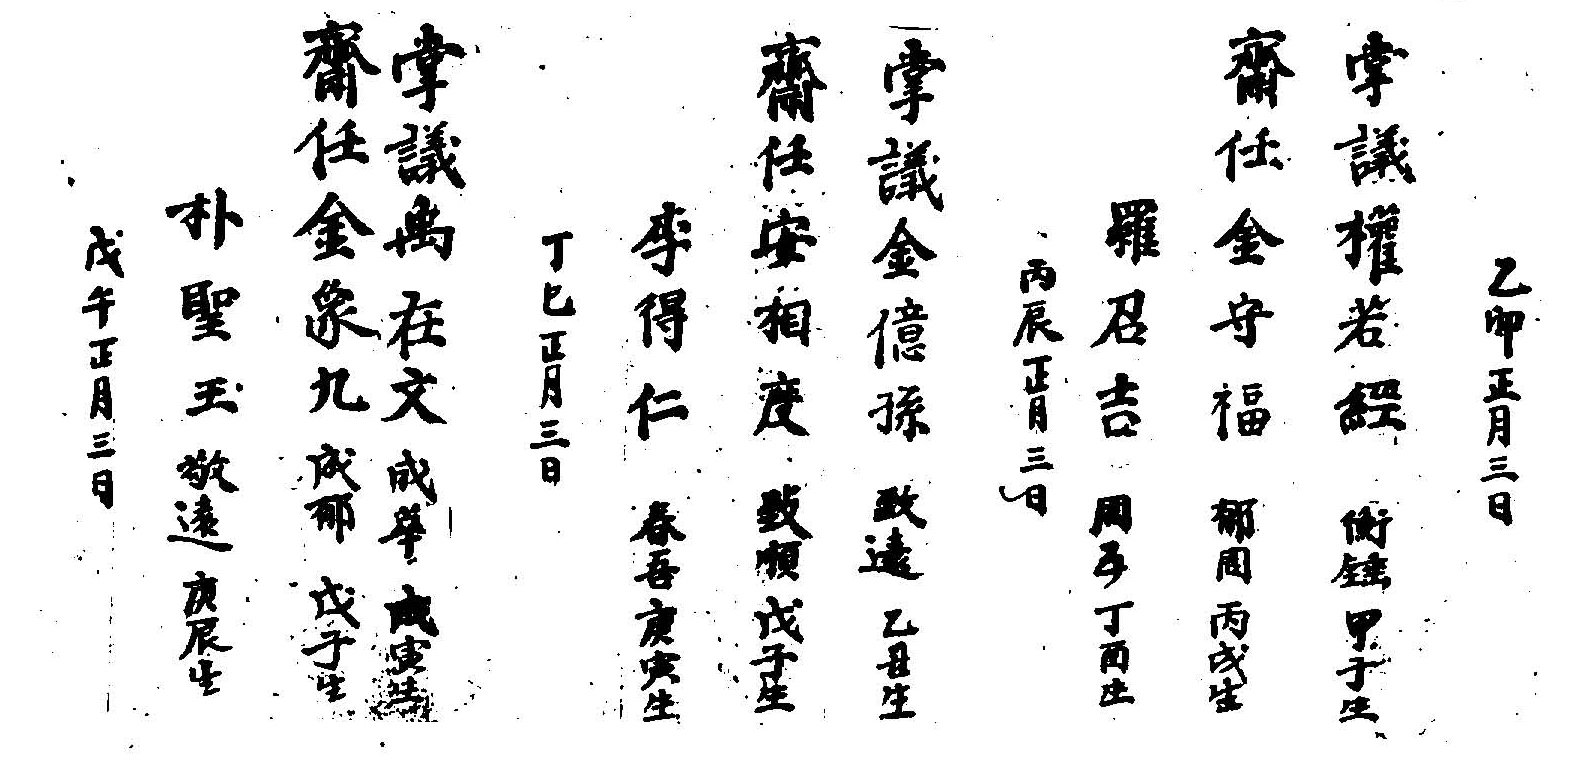 乙卯正月三日
掌議權若經 衡銓 甲子生
齋任金守福 郁周 丙戌生
羅召吉 周弼 丁酉生
丙辰正月三日
掌議金億孫 致遠 乙丑生
齋任安相度 致順 戊子生
李得仁 春吾 庚寅生
丁巳正月三日
掌議禹在文 成華 戊寅生
齋任金象九 成郁 戊子生
朴聖玉 敬遠 庚辰生
戊午正月三日